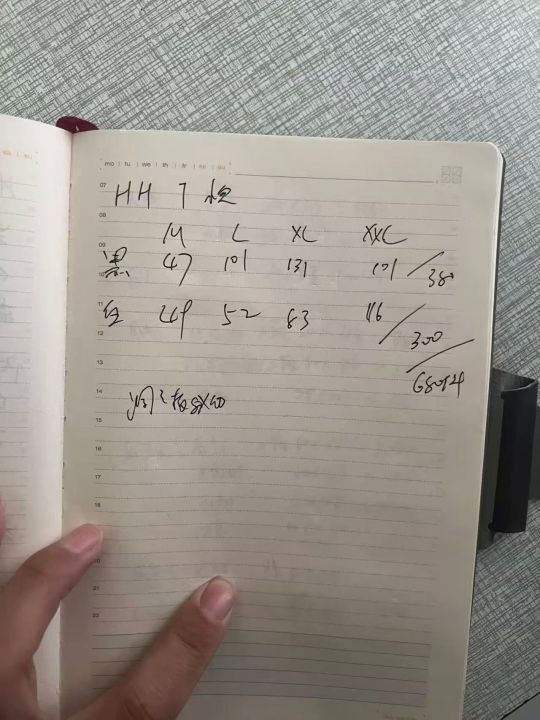 mo | tu | we | th | fr | sa | su
07
HH T 恤
08
M L XL XXL
09
黑 47 101 131 101 / 380
10
11
红 49 52 83 116 / 300
12
13
680件
14
15
16
17
18
20
21
22